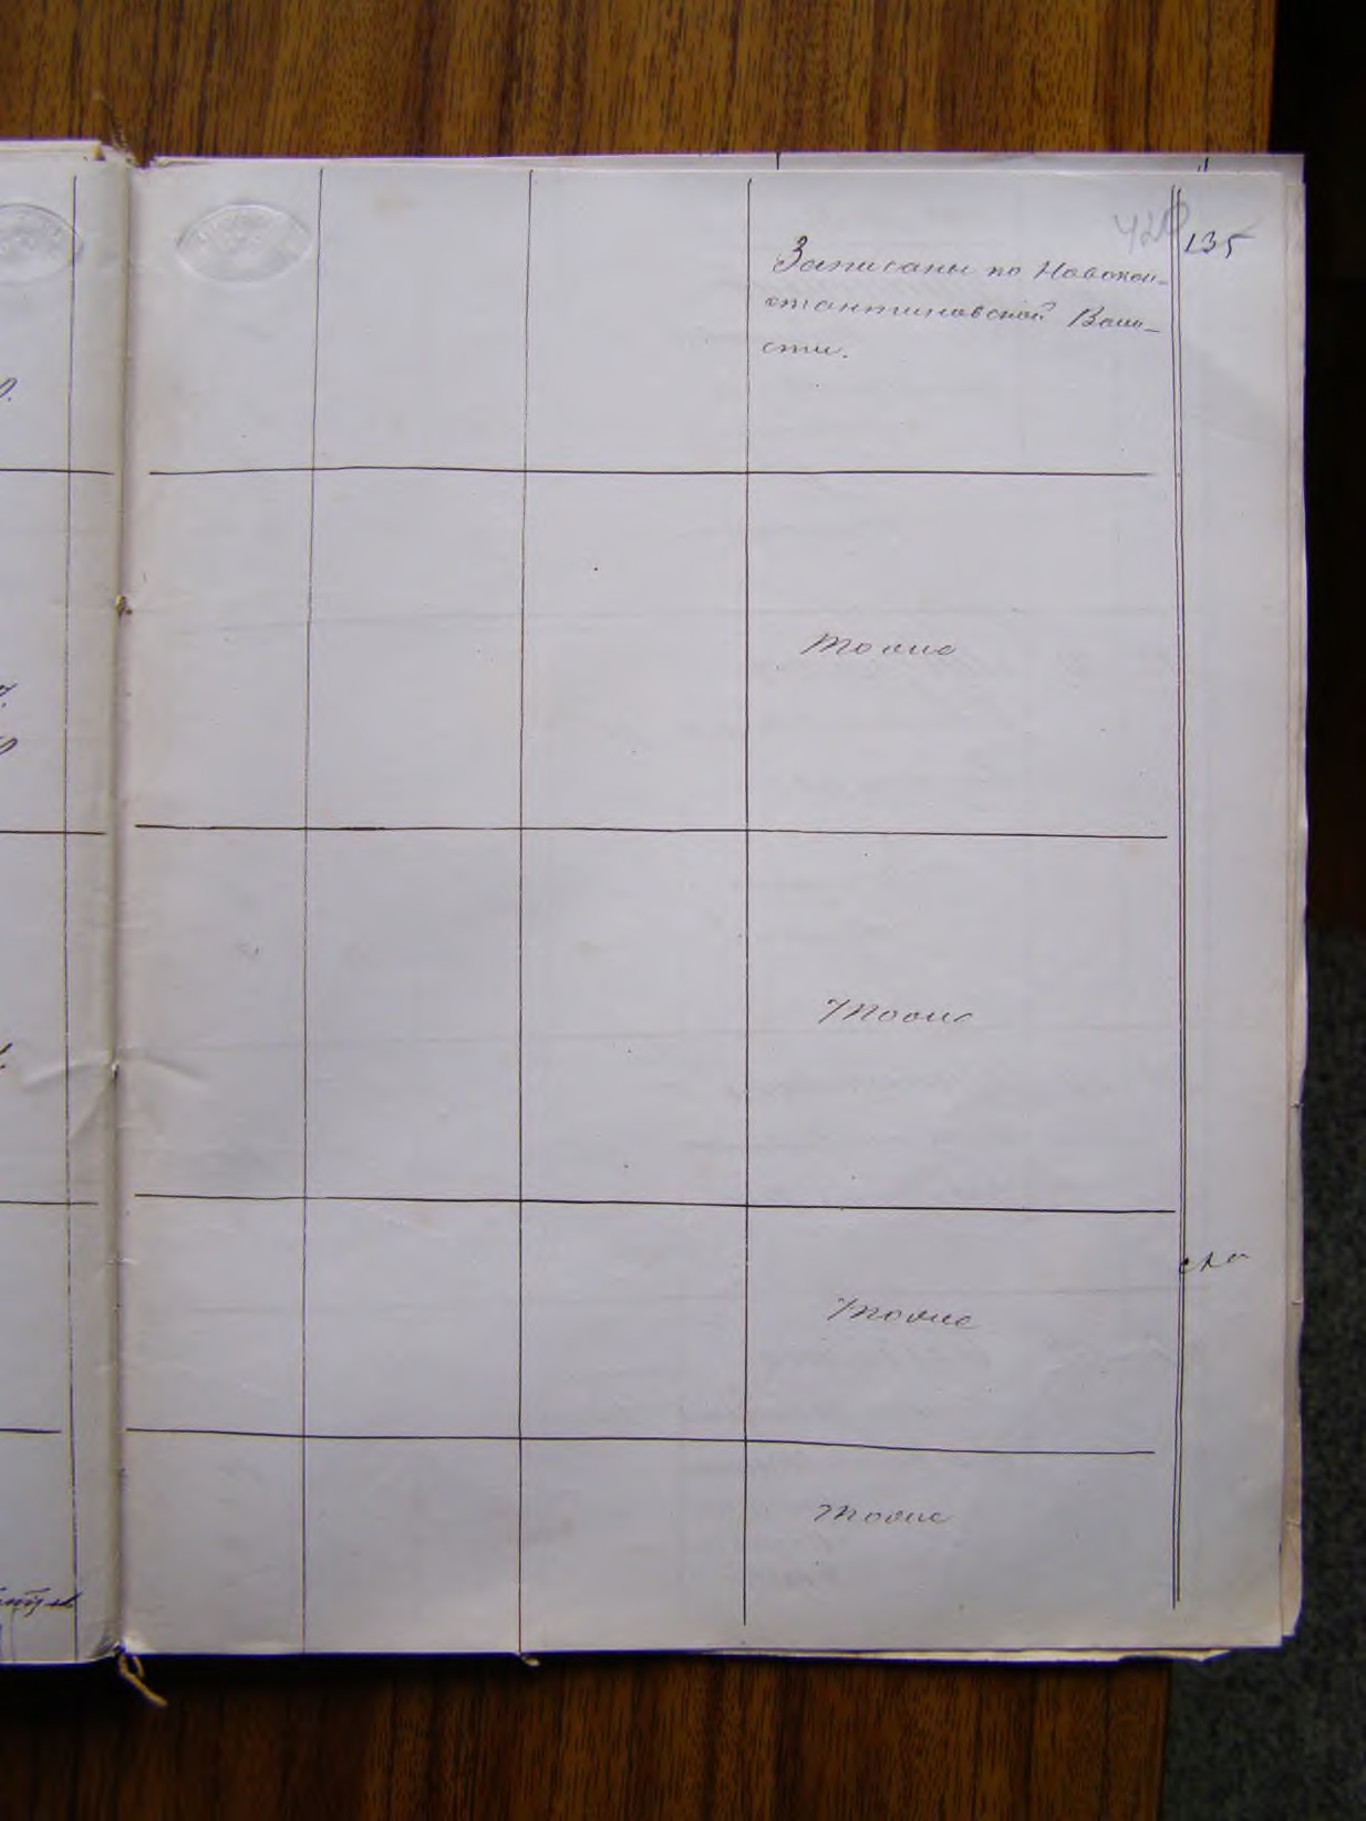 420 135
Записаны по Новокон-
стантиновской Воло-
сти.
тоже
тоже
тоже
тоже